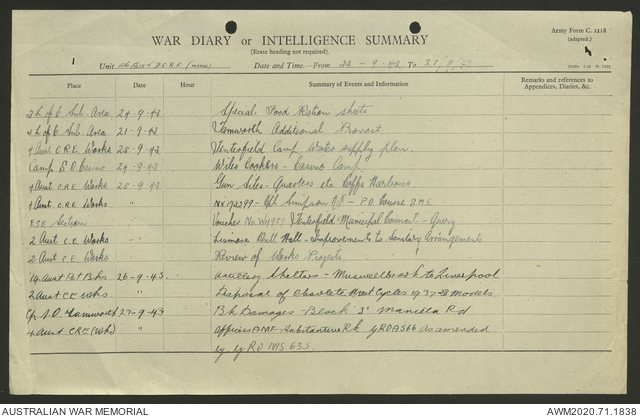 Army Form C. 2118
(adapted.)
WAR DIARY or INTELLIGENCE SUMMARY
(Erase heading not required).
1
Unit 4th Aust D.C.R.E. (Works) Date and Time—From 24-9-43 To 27/9/43
Place Date Hour Summary of Events and Information Remarks and references to Appendices, Diaries, &c.
L. of C. Sub. Area 24-9-43 Special Food Ration sheets
L. of C. Sub. Area 21-9-43 Tamworth Additional Provost
4 Aust C.R.E. Works 25-9-43 Tenterfield Camp Water supply plan.
Camp S.O. Casino 24-9-43 Wiles Cookers - Casino Camp
4 Aust C.R.E. Works 25-9-43 Gun Sites - Quarters etc Coffs Harbour
4 Aust C.R.E. Works " NX172399 - Cpl Simpson - P.O. Course S.M.E
Section " Voucher No W4987 Tenterfield Municipal Council - Query
2 Aust C.E. Works " Lismore Drill Hall - Improvements to Sanitary Arrangements
2 Aust C.E. Works " Review of Works Projects
14 Aust Pet 26-9-43. Shelters - Muswellbrook to Liverpool
2 Aust C.E Wks. " Disposal of Obsolete Cycles 1937-38 Models.
S.O. Tamworth 27-9-43 Bk Damages - Block 'S' Manilla Rd
4 Aust C.R.E. (Wks) " Officers AMF Substantive Rk GRO A566 As amended
by GRO 635.
AUSTRALIAN WAR MEMORIAL AWM2020.71.1838